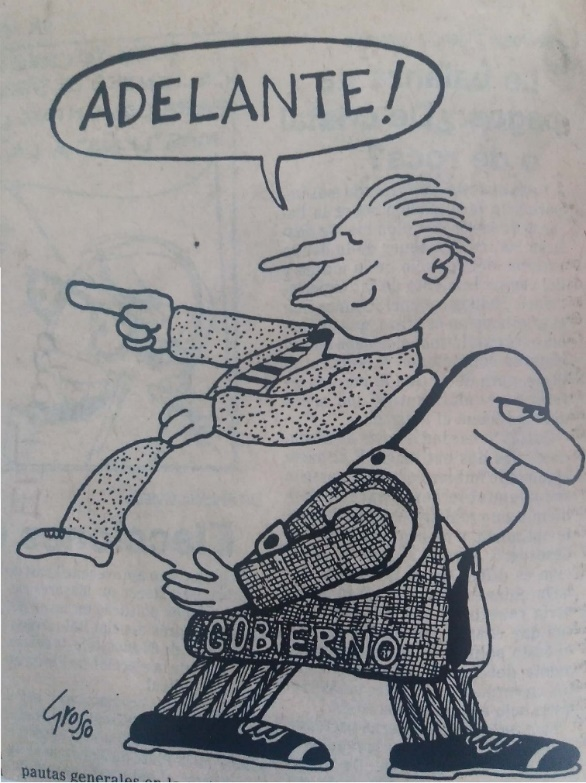 ADELANTE!
GOBIERNO
Grosso
pautas generales en